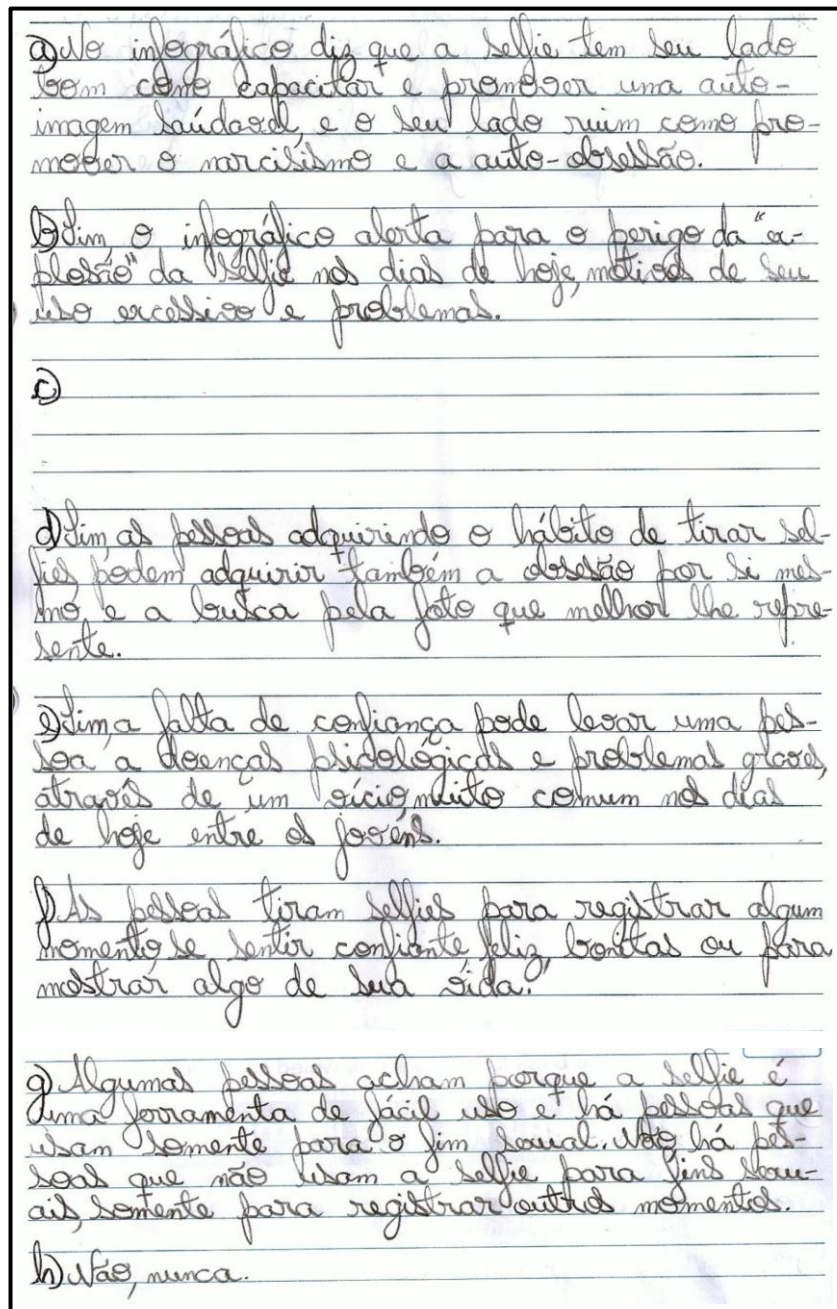 a) No infográfico diz que a selfie tem seu lado
bom como capacitar e promover uma auto-
imagem saúdavel, e o seu lado ruim como pro-
mover o narcisismo e a auto-obsessão.
b) Sim o infográfico alerta para o perigo da "ex-
plosão" da selfie nos dias de hoje, motivos de seu
uso excessivo e problemas.
c)
d) Sim, as pessoas adquirindo o hábito de tirar sel-
fies podem adquirir também a obsesão por si mes-
mo e a busca pela foto que melhor lhe repre-
sente.
e) Sim, a falta de confiança pode levar uma pes-
soa a doenças psicológicas e problemas graves,
através de um vício muito comum nos dias
de hoje entre os jovéns.
f) As pessoas tiram selfies para registrar algum
momento, se sentir confiante, feliz, bonitas ou para
mostrar algo de sua vida.
g) Algumas pessoas acham porque a selfie é
uma ferramenta de fácil uso e há pessoas que
usam somente para o fim sexual. Não há pes-
soas que não usam a selfie para fins sexu-
ais, somente para registrar outros momentos.
h) Não, nunca.